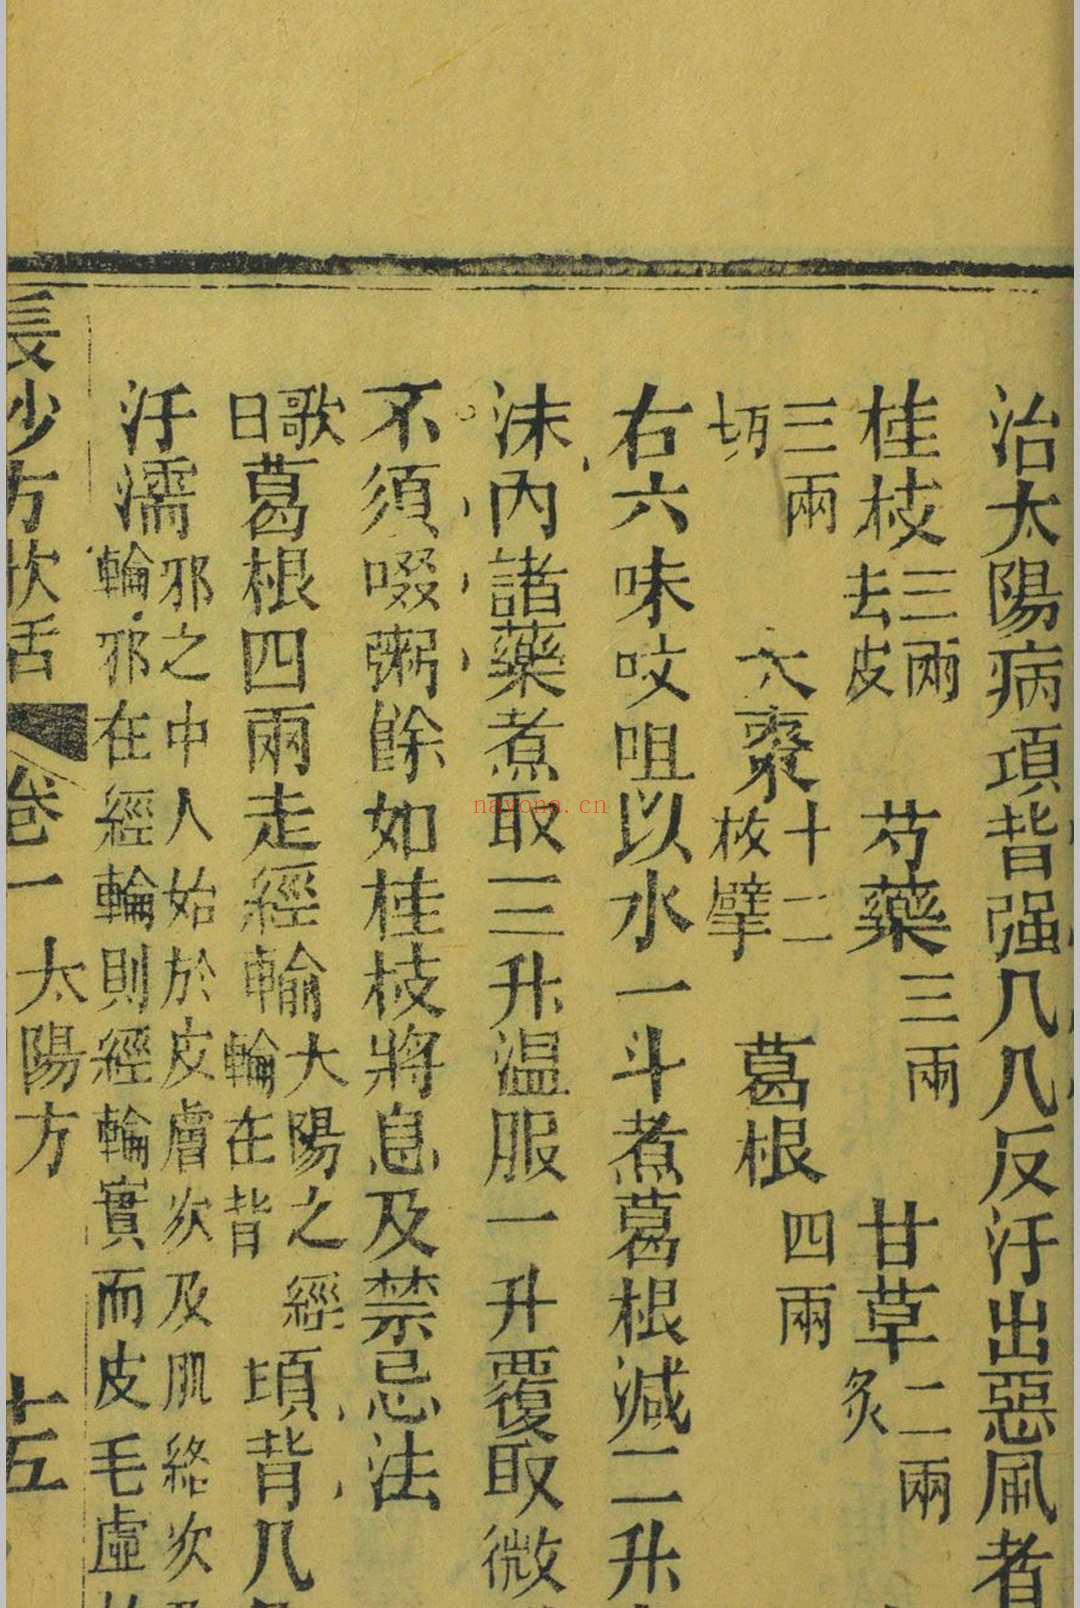 治太陽病項背强几几反汗出惡風者
桂枝三兩去皮 芍藥三兩 甘草二兩炙
三兩切 大棗十二枚擘 葛根四兩
右六味㕮咀以水一斗煮葛根減二升
沫內諸藥煮取三升温服一升覆取微
不須啜粥餘如桂枝將息及禁忌法
歌曰葛根四兩走經輸大陽之經輪在背項背几
汗濡邪之中人始於皮膚次及肌絡次
輪邪在經輪則經輪實而皮毛虛
長沙方歌括 卷一 太陽方 十五
nayona.cn